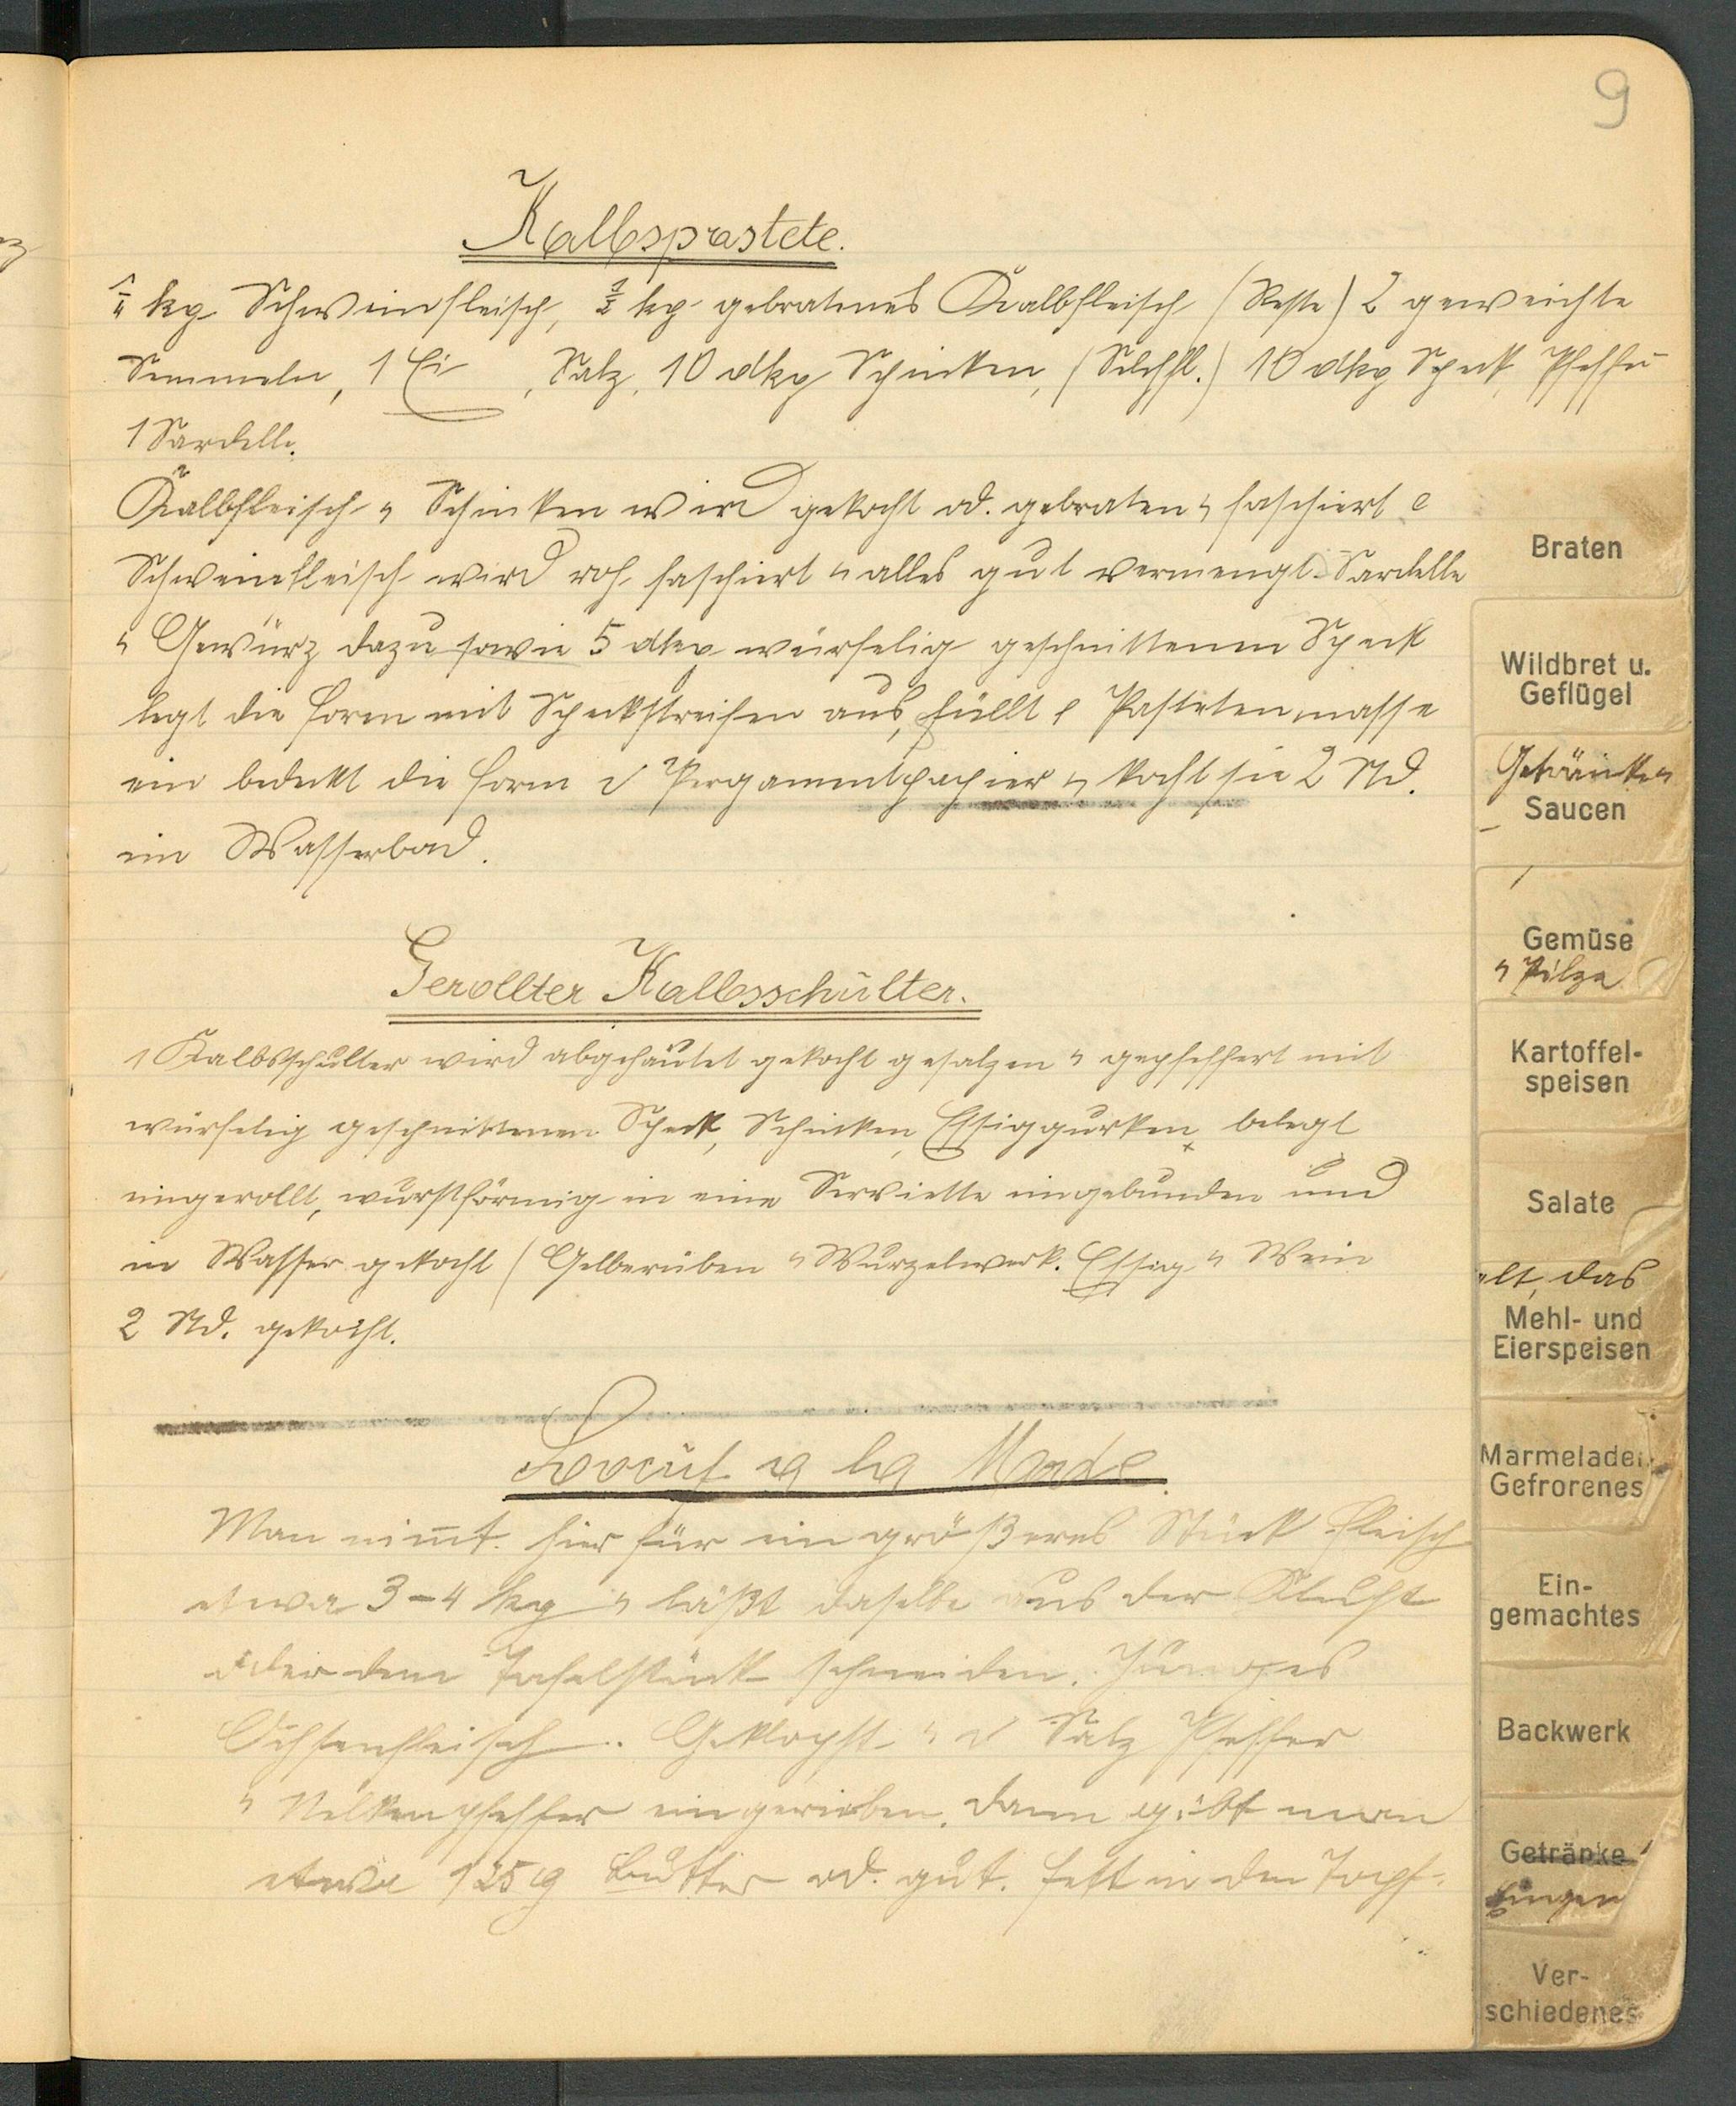 9
Kalbspastete.
¼ kg Schweinfleisch, ½ kg gebratenes Kalbfleisch (Reste) 2 geweichte
Semmeln, 1 Ei, Salz, 10 dkg Schinken, (Selchfl.) 10 dkg Speck, Pfeffer
1 Sardelle.
Kalbfleisch u Schinken wird gekocht od. gebraten u faschiert
Schweinefleisch wird roh faschiert u alles gut vermengt. Sardelle
u Gewürz dazu sowie 5 dkg würfelig geschnittenen Speck
legt die Form mit Speckstreifen aus, füllt Pastetenmasse
ein bedeckt die Form Pergamentpapier u kocht sie 2 Std.
im Wasserbad.
Gerollter Kalbsschulter.
1 Kalbsschulter wird abgehäutet gekocht gesalzen u gepfeffert mit
würfelig geschnittenen Speck, Schinken, Essiggurken belegt
eingerollt, wurstförmig in eine Serviette eingebunden und
in Wasser gekocht (Gelberüben u Wurzelwerk. Essig u Wein
2 Std. gekocht.
a la Mode
Man nim̄t hier für ein größeres Stück Fleisch
etwa 3-4 kg u läßt daselbe aus der
oder dem Tafelstück schneiden. Junges
Ochsenfleisch. Geklopft u Salz Pfeffer
u Nelkenpfeffer eingerieben. Dann gibt man
etwa 125 g Butter od. gut. Fett in den Topf.
Braten
Wildbret u.
Geflügel
Getränke u
Saucen
Gemüse
u Pilze
Kartoffel-
speisen
Salate
das
Mehl- und
Eierspeisen
Marmeladen
Gefrorenes
Ein-
gemachtes
Backwerk
Getränke
Ver-
schiedenes